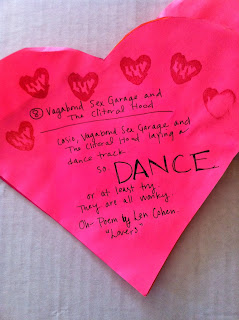 ⑧ Vagabond Sex Garage and
The Clitoral Hood
Casio, Vagabond Sex Garage and
The Clitoral Hood laying a
dance track
so DANCE
or at least try
They are all wonky.
Oh- Poem by Len Cohen
"Lovers"